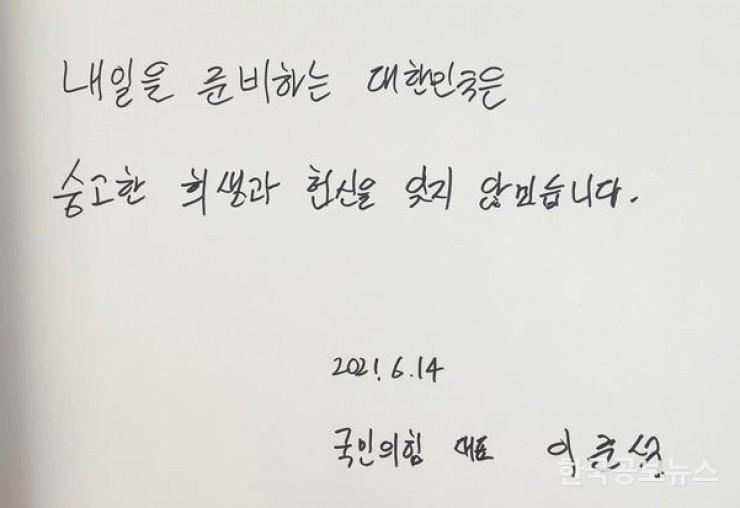 내일을 준비하는 대한민국은
숭고한 희생과 헌신을 잊지 않믿습니다.
2021.6.14
국인의힘 대표 이준석
한국공보뉴스